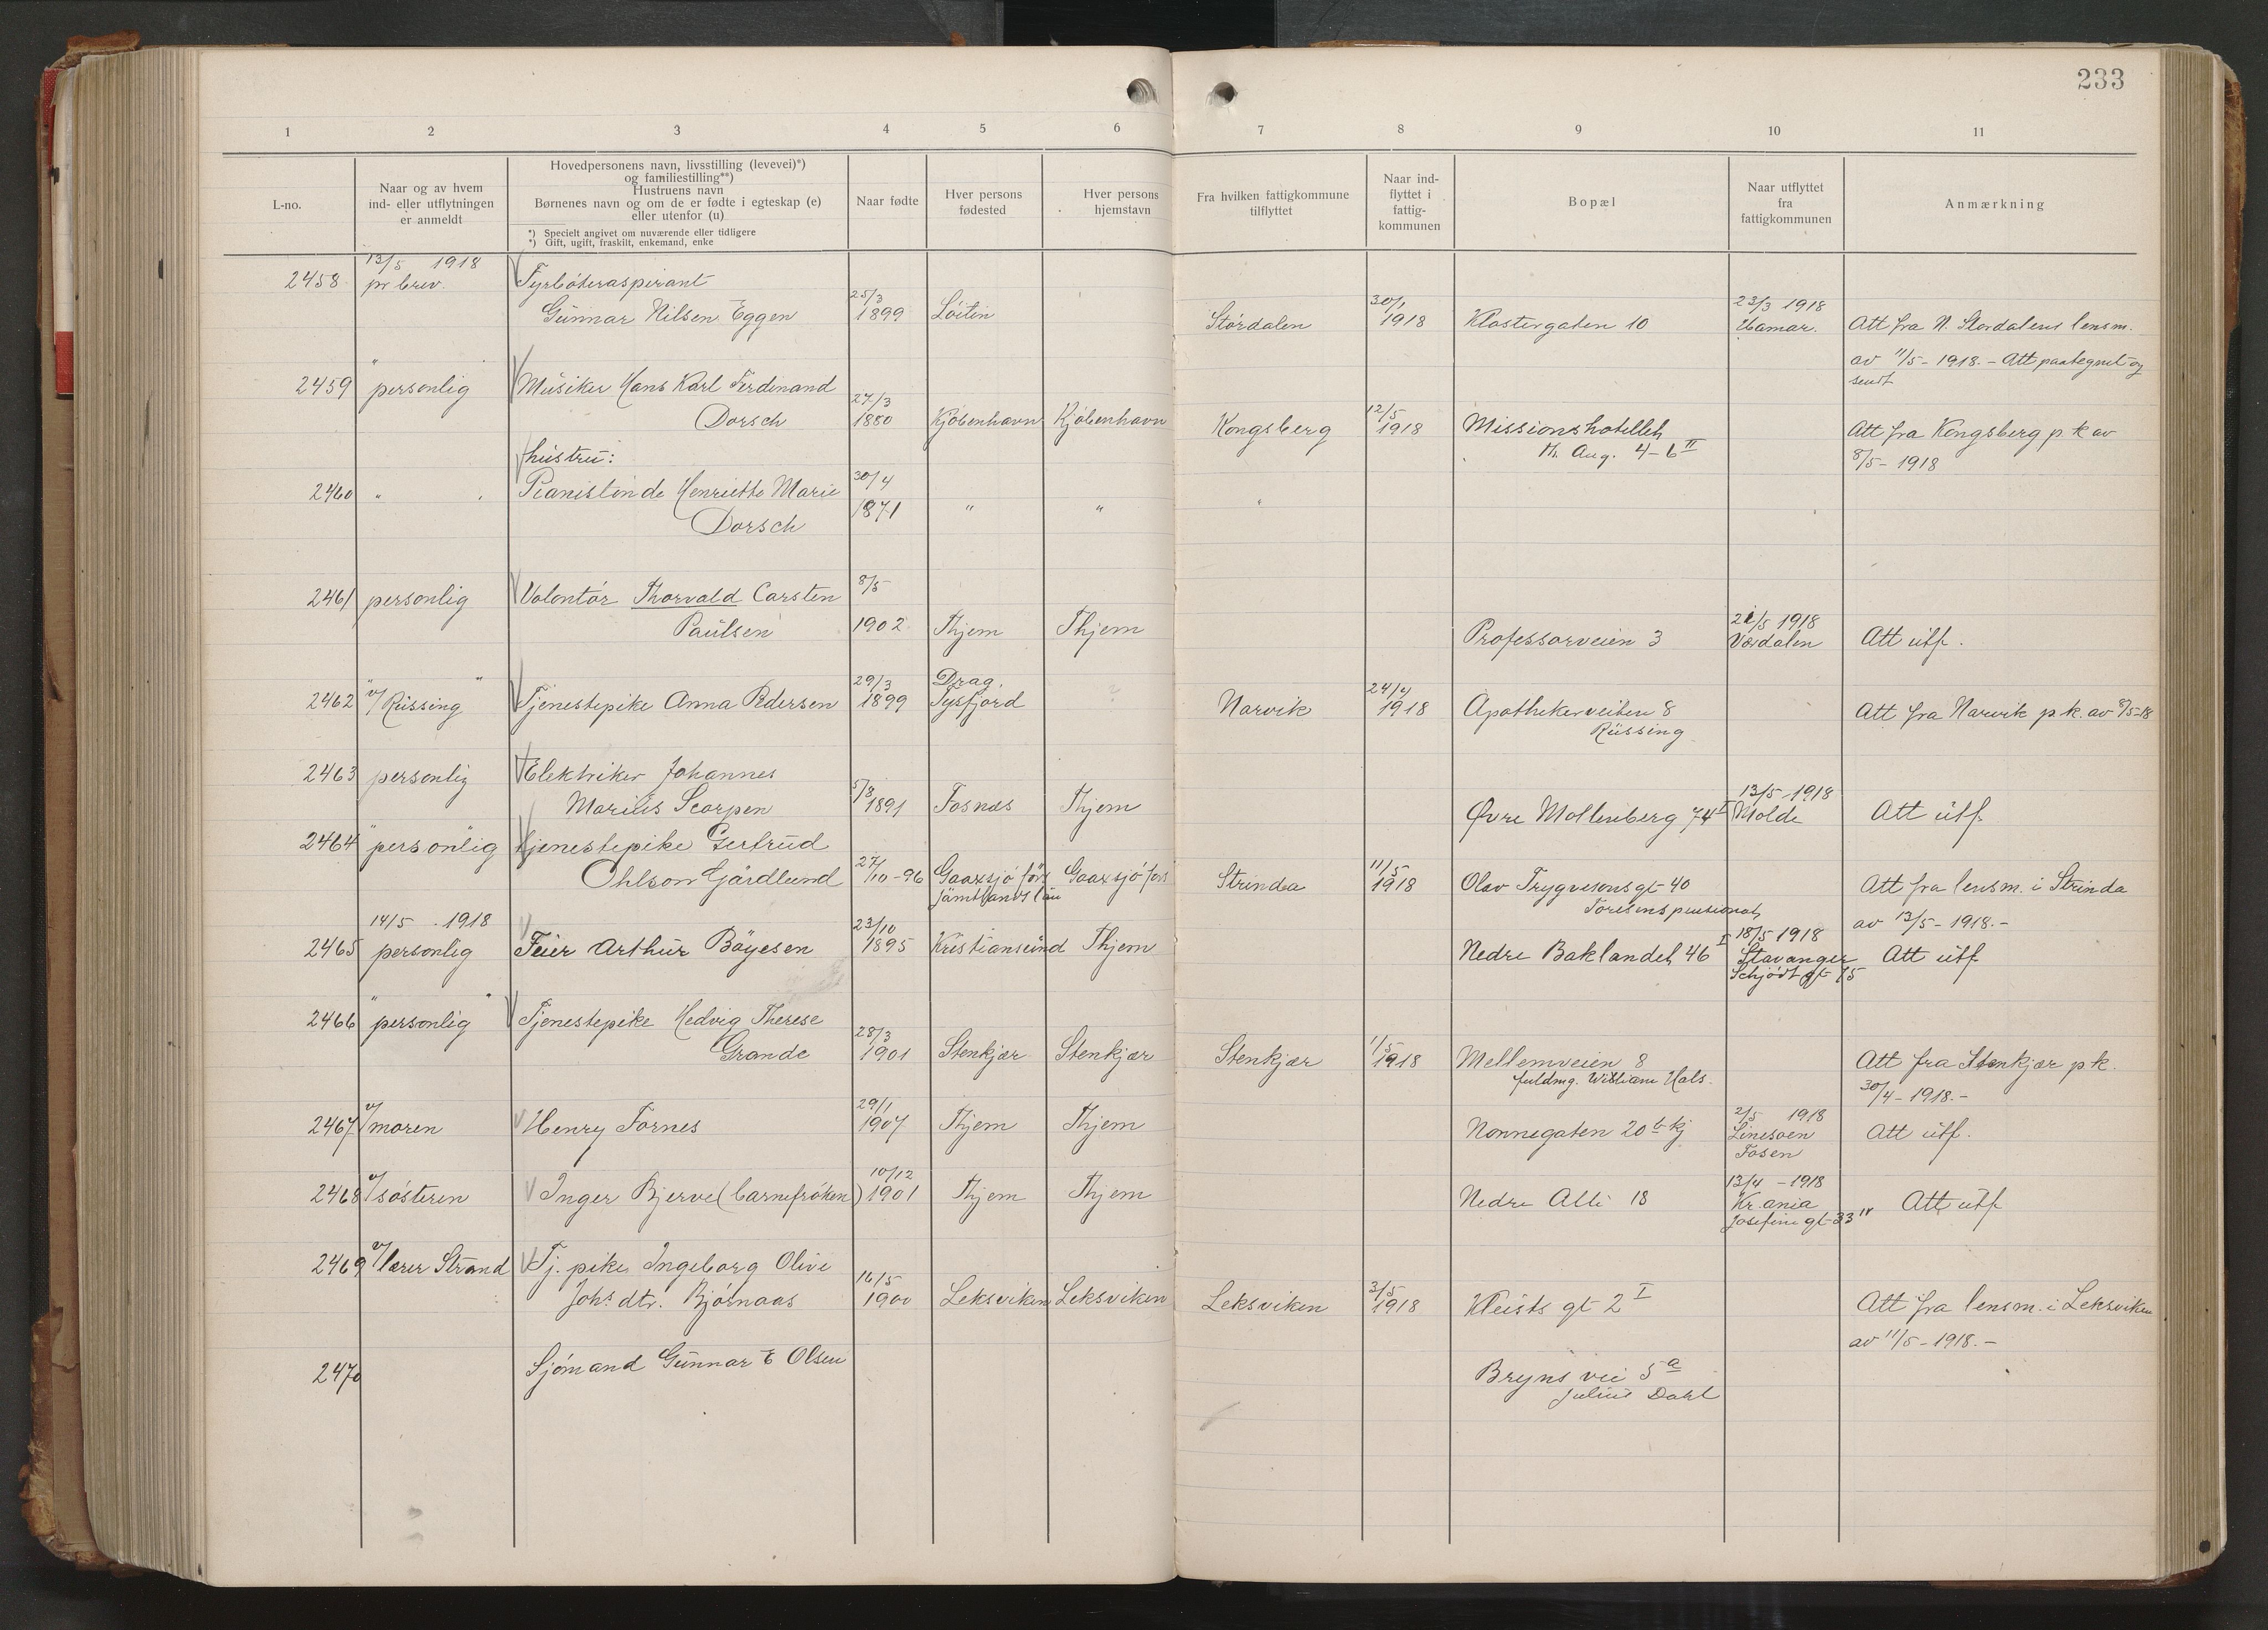 233
1 2 3 4 5 6 7 8 9 10 11
L-no.
Naar og av hvem
ind- eller utflytningen
er anmeldt
Hovedpersonens navn, livsstilling (levevei)*)
og familiestilling**)
Hustruens navn
Børnenes navn og om de er fødte i egteskap (e)
eller utenfor (u)
*) Specielt angivet om nuværende eller tidligere
*) Gift, ugift, fraskilt, enkemand, enke
Naar fødte
Hver persons
fødested
Hver persons
hjemstavn
Fra hvilken fattigkommune
tilflyttet
Naar ind-
flyttet i
fattig-
kommunen
Bopæl
Naar utflyttet
fra
fattigkommunen
Anmærkning
13/5 1918
2458 pr brev. Fyrbøteraspirant
Gunnar Nilsen Eggen 25/3 1899 Løiten Størdalen 30/1 1918 Klostergaten 10 23/3 1918 Hamar. Att fra N. Stordalens lensm.
av 11/5 - 1918. - Att paategnet og
sendt
2459 " personlig Musiker Hans Karl Ferdinand
Dorsch 27/3 1880 Kjøbenhavn Kjøbenhavn Kongsberg 12/5 1918 Missionshotellet Att fra Kongsberg p.k av
Th. Aug. 4-6 II 8/5 - 1918
hustru:
2460 " " Pianistinde Henriette Marie 30/4
Dorsch 1871 " " "
2461 personlig Volontør Thorvald Carsten 8/5
Paulsen 1902 Thjem Thjem Professorveien 3 21/5 1918 Værdalen Att utf.
2462 " " v/ Rüssing Tjenestepike Anna Pedersen 29/3 1899 Drag, Tysfjord ? Narvik 24/4 1918 Apothekerveiten 8 Att fra Narvik p.k. av 8/5-18
Rüssing
2463 personlig Elektriker Johannes
Marius Scarpen 5/8 1891 Fosnæs Thjem Øvre Møllenberg 74 I 13/5 - 1918 Molde Att utf
2464 " personlig Tjenestepike Gertrud
Ohlson Gjärdlund 27/10-96 Gaaxsjö fors Gaaxsjö fors Strinda 11/5 1918 Olav Trygvesons gt 40 Att fra lensm. i Strinda
Jämtlands län Toresens pensionat av 13/5 - 1918. -
14/5 1918
2465 personlig Feier Arthur Bøyesen 23/10 1895 Kristiansund Thjem Nedre Baklandet 46 I 18/5 1918 Stavanger Att utf
Schjødt gt 15
2466 " " personlig Tjenestepike Hedvig Therese
Grande 28/3 1901 Stenkjær Stenkjær Stenkjær 1/5 1918 Mellemveien 8 Att fra Stenkjær p.k.
fuldmg. William Hals. 30/4 - 1918. -
2467 v/ moren Henry Fornes 29/1 1907 Thjem Thjem Nonnegaten 20 b kj 2/5 1918 Linesøen Fosen Att utf.
2468 v/ søsteren Inger Bjerve (barnefrøken) 10/12 1901 Thjem Thjem Nedre Alle 18 13/4 - 1918 Kr.ania Att utf
Josefine gt 33 IV
2469 v/ lærer Strand Tj. pike Ingeborg Olive
Johs dtr. Bjørnaas 16/5 1900 Leksviken Leksviken Leksviken 3/5 1918 Kleists gt 2 I Att fra lensm. i Leksviken
av 11/5 - 1918. -
2470 Sjømand Gunnar E Olsen Bryns vei 5 a
Julius Dahl